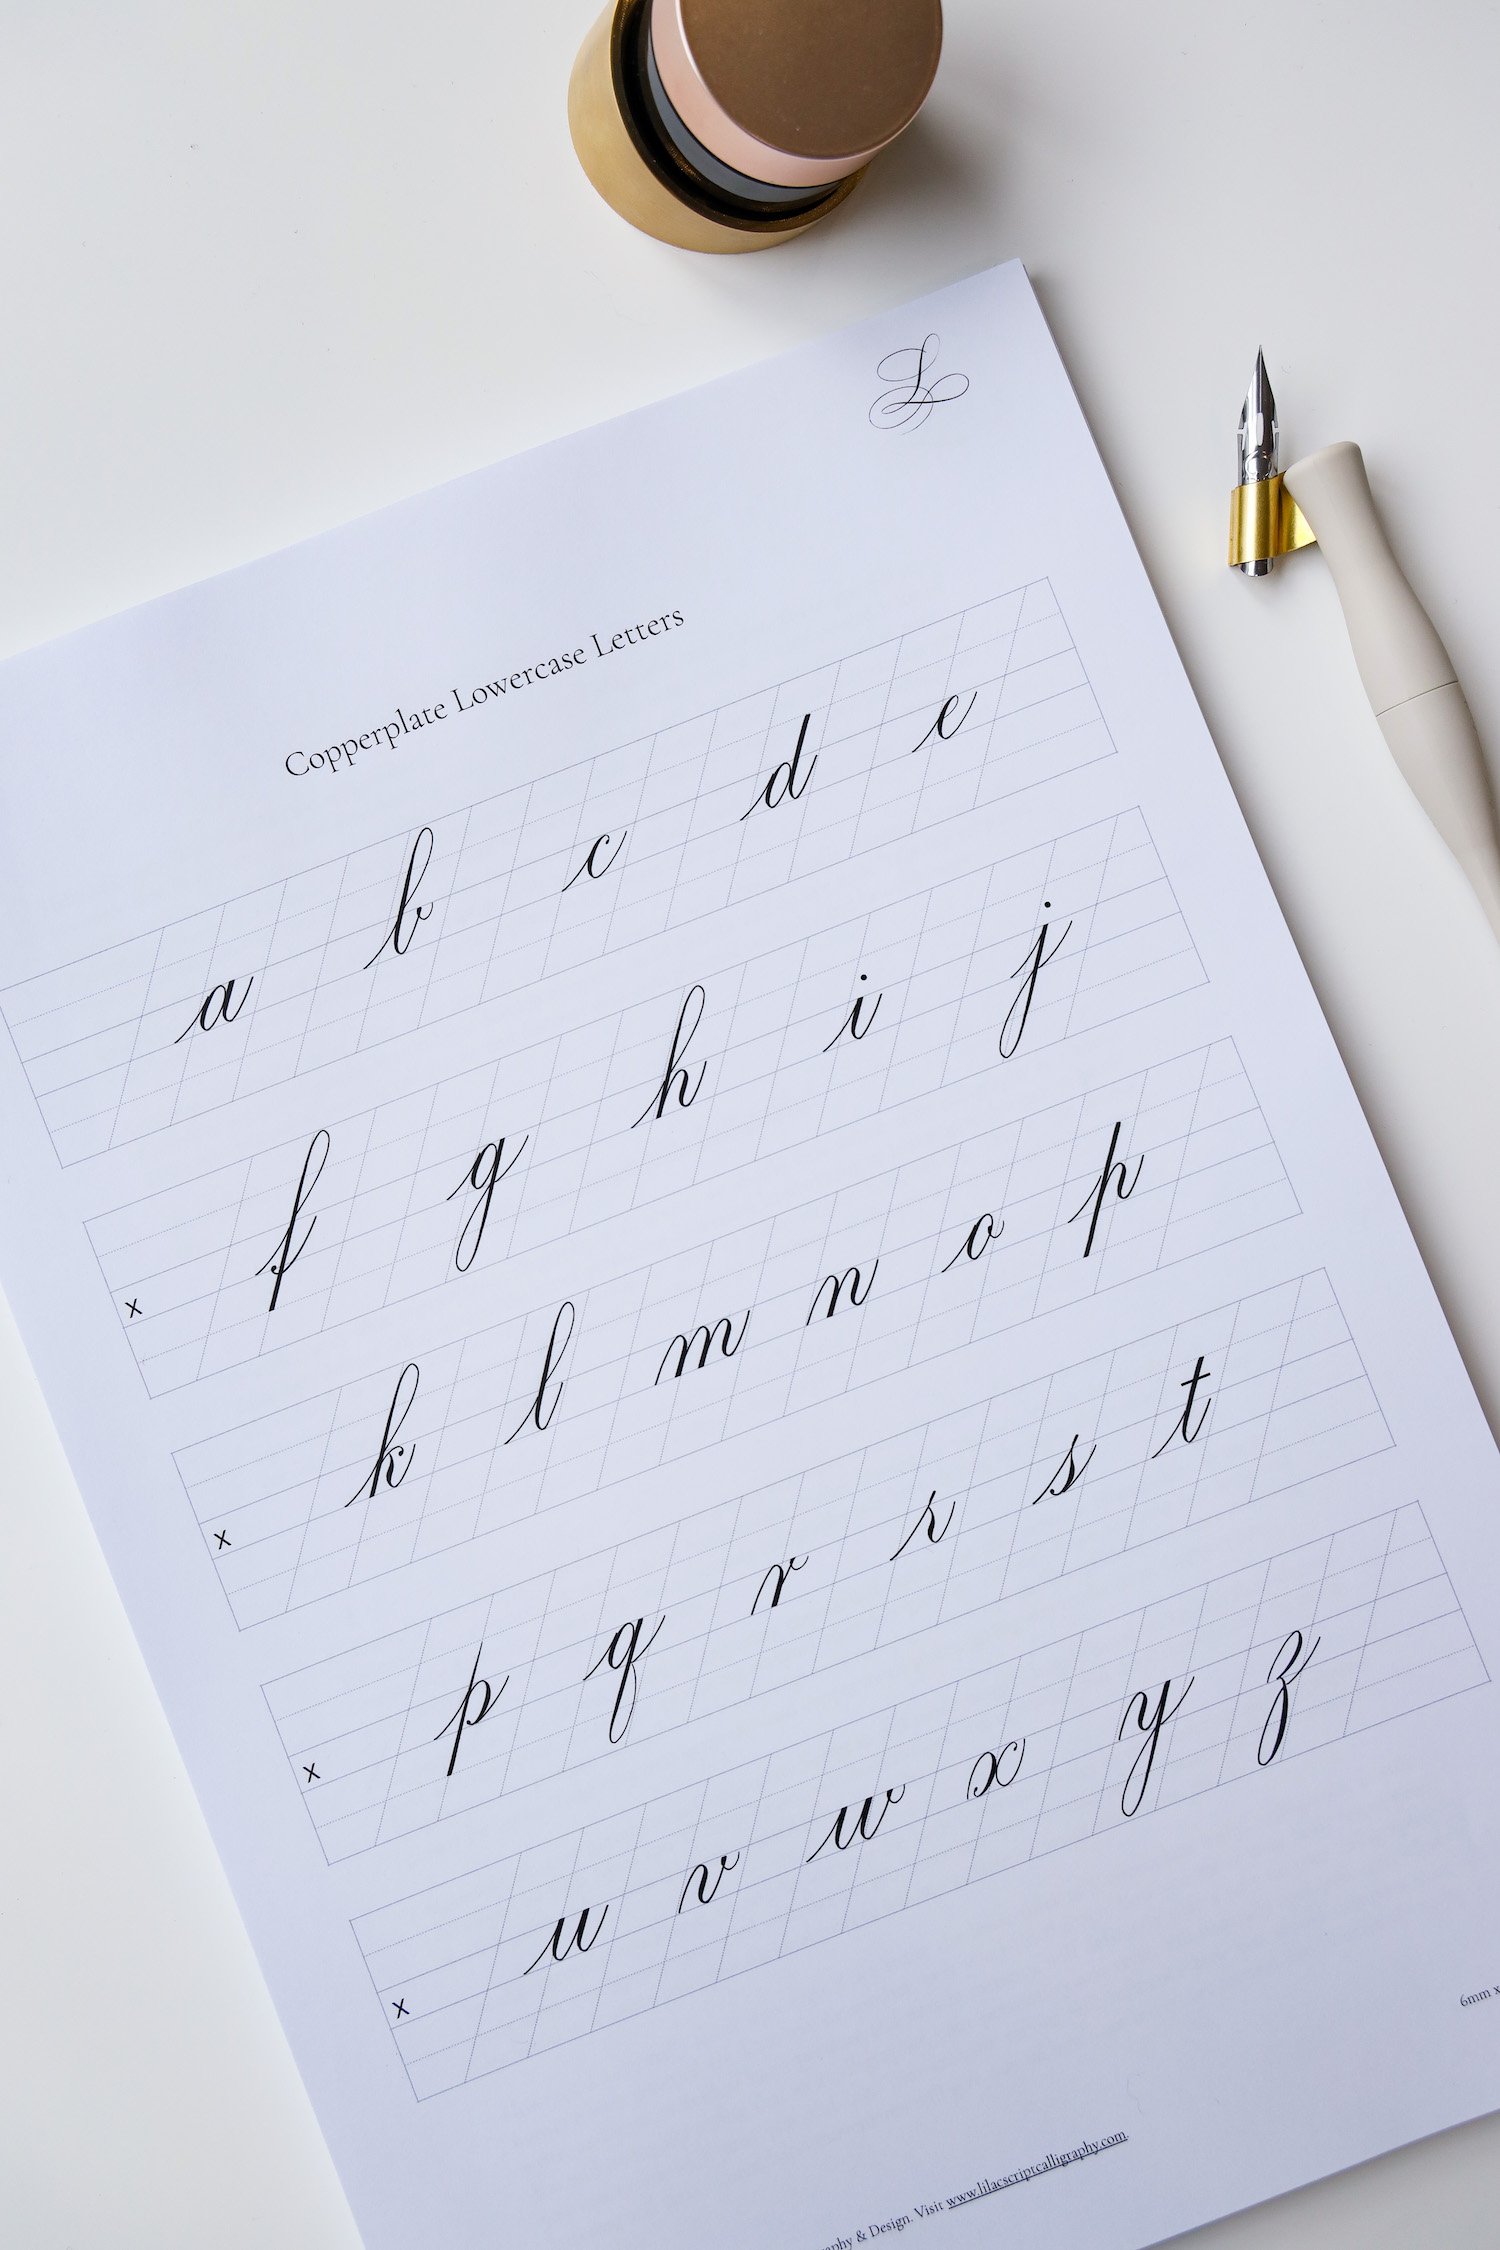 L
Copperplate Lowercase Letters
a b c d e
x f g h i j
x k l m n o p
x p q r r s t
x u v w x y z
6mm x
& Design. Visit www.lilacscriptcalligraphy.com.